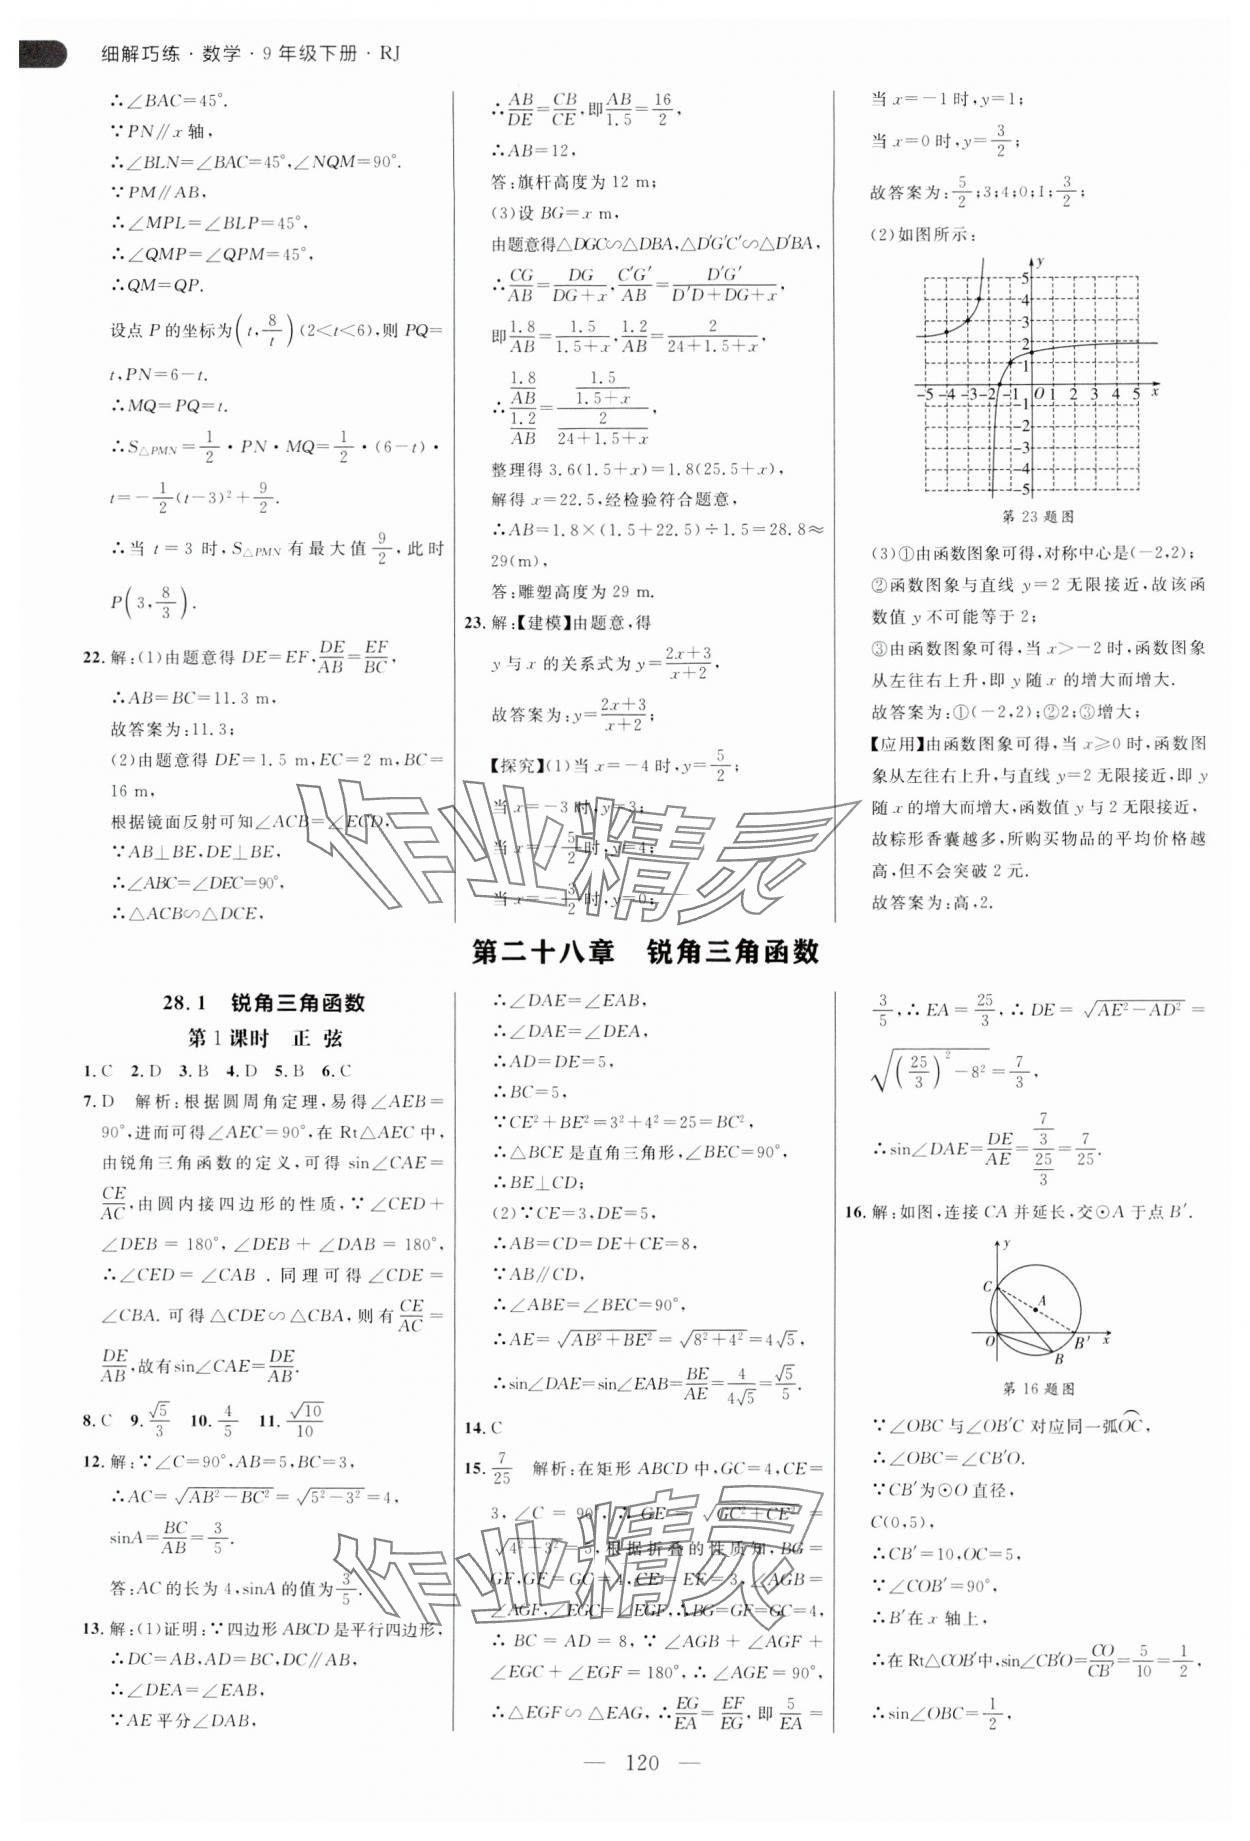 细解巧练·数学·9年级下册·RJ
∴∠BAC=45°.
∵PN∥x轴,
∴∠BLN=∠BAC=45°,∠NQM=90°.
∵PM∥AB,
∴∠MPL=∠BLP=45°,
∴∠QMP=∠QPM=45°,
∴QM=QP.
设点P的坐标为(t,8/t)(2<t<6),则PQ=
t,PN=6-t.
∴MQ=PQ=t.
∴S△PMN=1/2·PN·MQ=1/2·(6-t)·
t=-1/2(t-3)²+9/2.
∴当t=3时,S△PMN有最大值9/2,此时
P(3,8/3).
22.解:(1)由题意得DE=EF,DE/AB=EF/BC,
∴AB=BC=11.3 m,
故答案为:11.3;
(2)由题意得DE=1.5 m,EC=2 m,BC=
16 m,
根据镜面反射可知∠ACB=∠ECD,
∵AB⊥BE,DE⊥BE,
∴∠ABC=∠DEC=90°,
∴△ACB∽△DCE,
∴AB/DE=CB/CE,即AB/1.5=16/2,
∴AB=12,
答:旗杆高度为12 m;
(3)设BG=x m,
由题意得△DGC∽△DBA,△D′G′C′∽△D′BA,
∴CG/AB=DG/(DG+x),C′G′/AB=D′G′/(D′D+DG+x),
即1.8/AB=1.5/(1.5+x),1.2/AB=2/(24+1.5+x),
∴(1.8/AB)/(1.2/AB)=(1.5/(1.5+x))/(2/(24+1.5+x)),
整理得3.6(1.5+x)=1.8(25.5+x),
解得x=22.5,经检验符合题意,
∴AB=1.8×(1.5+22.5)÷1.5=28.8≈
29(m),
答:雕塑高度为29 m.
23.解:【建模】由题意,得
y与x的关系式为y=(2x+3)/(x+2),
故答案为:y=(2x+3)/(x+2);
【探究】(1)当x=-4时,y=5/2;
当x=-3时,y=3;
当x=-5/2时,y=4;
当x=-3/2时,y=0;
当x=-1时,y=1;
当x=0时,y=3/2;
故答案为:5/2;3;4;0;1;3/2;
(2)如图所示:
y
5
4
3
2
1
-5 -4 -3 -2 -1 O 1 2 3 4 5 x
-1
-2
-3
-4
-5
第23题图
(3)①由函数图象可得,对称中心是(-2,2);
②函数图象与直线y=2无限接近,故该函
数值y不可能等于2;
③由函数图象可得,当x>-2时,函数图象
从左往右上升,即y随x的增大而增大.
故答案为:①(-2,2);②2;③增大;
【应用】由函数图象可得,当x≥0时,函数图
象从左往右上升,与直线y=2无限接近,即y
随x的增大而增大,函数值y与2无限接近,
故粽形香囊越多,所购买物品的平均价格越
高,但不会突破2元.
故答案为:高,2.
第二十八章 锐角三角函数
28.1 锐角三角函数
第1课时 正弦
1.C 2.D 3.B 4.D 5.B 6.C
7.D 解析:根据圆周角定理,易得∠AEB=
90°,进而可得∠AEC=90°,在Rt△AEC中,
由锐角三角函数的定义,可得sin∠CAE=
CE/AC,由圆内接四边形的性质,∵∠CED+
∠DEB=180°,∠DEB+∠DAB=180°,
∴∠CED=∠CAB.同理可得∠CDE=
∠CBA.可得△CDE∽△CBA,则有CE/AC=
DE/AB,故有sin∠CAE=DE/AB.
8.C 9.√5/3 10.4/5 11.√10/10
12.解:∵∠C=90°,AB=5,BC=3,
∴AC=√(AB²-BC²)=√(5²-3²)=4,
sinA=BC/AB=3/5.
答:AC的长为4,sinA的值为3/5.
13.解:(1)证明:∵四边形ABCD是平行四边形,
∴DC=AB,AD=BC,DC∥AB,
∴∠DEA=∠EAB,
∵AE平分∠DAB,
∴∠DAE=∠EAB,
∴∠DAE=∠DEA,
∴AD=DE=5,
∴BC=5,
∵CE²+BE²=3²+4²=25=BC²,
∴△BCE是直角三角形,∠BEC=90°,
∴BE⊥CD;
(2)∵CE=3,DE=5,
∴AB=CD=DE+CE=8,
∵AB∥CD,
∴∠ABE=∠BEC=90°,
∴AE=√(AB²+BE²)=√(8²+4²)=4√5,
∴sin∠DAE=sin∠EAB=BE/AE=4/(4√5)=√5/5.
14.C
15.7/25 解析:在矩形ABCD中,GC=4,CE=
3,∠C=90°,∴GE=√(GC²+CE²)=
√(4²+3²)=5,根据折叠的性质知,BG=
GF,GF=GC=4,CE=EF=3,∠AGB=
∠AGF,∠EGC=∠EGF,∴BG=GF=GC=4,
∴BC=AD=8,∵∠AGB+∠AGF+
∠EGC+∠EGF=180°,∴∠AGE=90°,
∴△EGF∽△EAG,∴EG/EA=EF/EG,即5/EA=
3/5,∴EA=25/3,∴DE=√(AE²-AD²)=
√((25/3)²-8²)=7/3,
∴sin∠DAE=DE/AE=(7/3)/(25/3)=7/25.
16.解:如图,连接CA并延长,交⊙A于点B′.
y
C
A
O
B′
x
B
第16题图
∵∠OBC与∠OB′C对应同一弧OC,
∴∠OBC=∠CB′O.
∵CB′为⊙O直径,
C(0,5),
∴CB′=10,OC=5,
∴∠COB′=90°,
∴B′在x轴上,
∴在Rt△COB′中,sin∠CB′O=CO/CB′=5/10=1/2,
∴sin∠OBC=1/2,
— 120 —
作业精灵
作业精灵